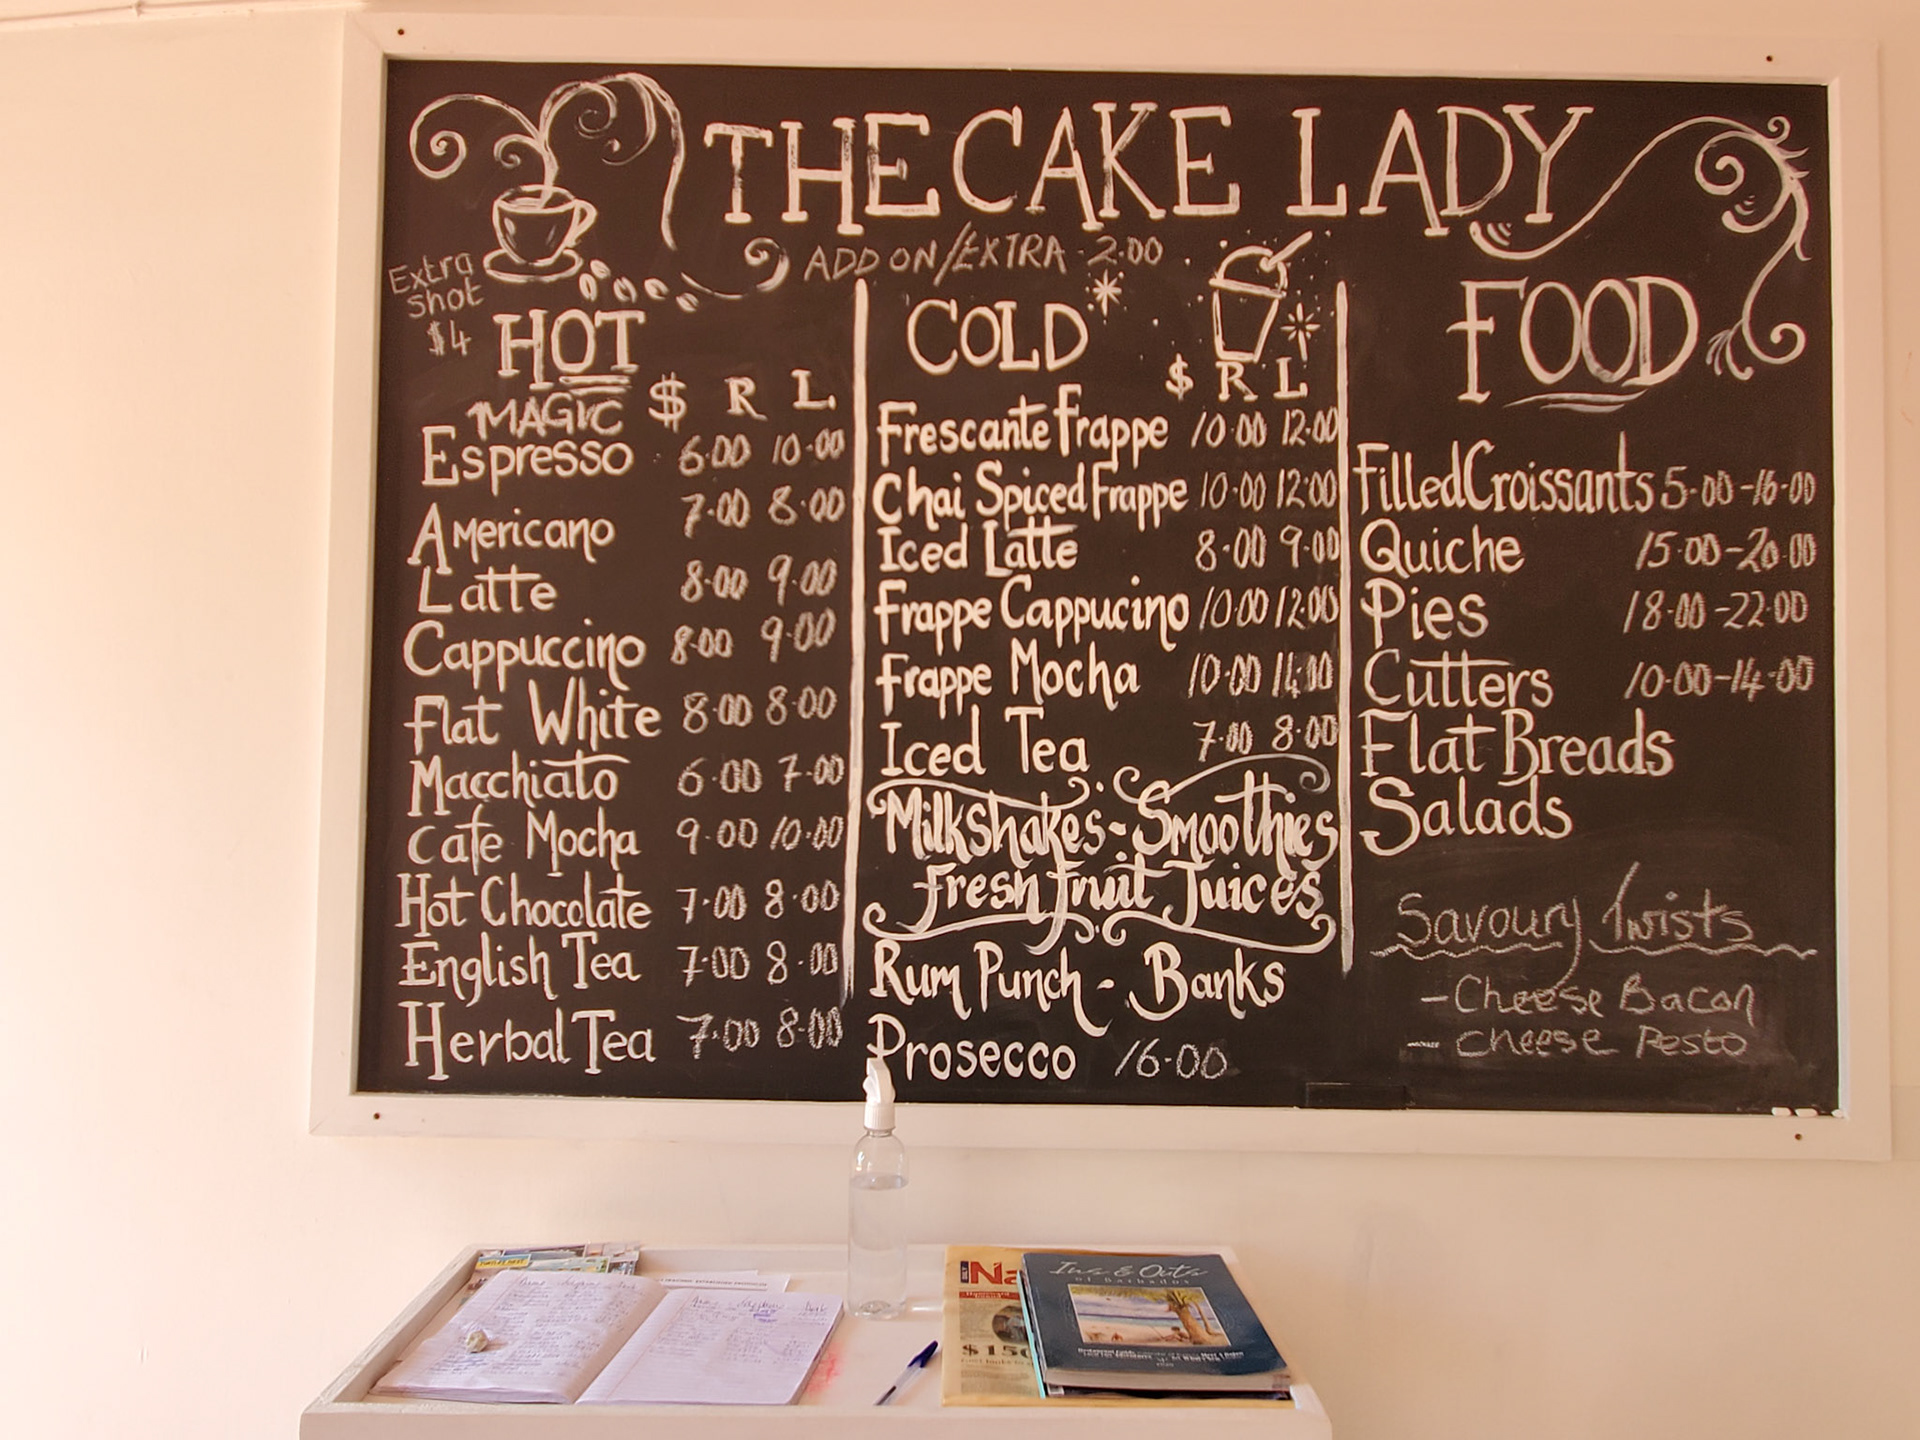 THE CAKE LADY
ADD ON/EXTRA 2.00
Extra
Shot
$4
HOT
$ R L
MAGIC
Espresso 6.00 10.00
Americano 7.00 8.00
Latte 8.00 9.00
Cappuccino 8.00 9.00
Flat White 8.00 8.00
Macchiato 6.00 7.00
Cafe Mocha 9.00 10.00
Hot Chocolate 7.00 8.00
English Tea 7.00 8.00
Herbal Tea 7.00 8.00
COLD
$ R L
Frescante Frappe 10.00 12.00
Chai Spiced Frappe 10.00 12.00
Iced Latte 8.00 9.00
Frappe Cappucino 10.00 12.00
Frappe Mocha 10.00
Iced Tea 7.00 8.00
Milkshakes - Smoothies
Fresh Fruit Juices
Rum Punch - Banks
Prosecco 16.00
FOOD
Filled Croissants 5.00-16.00
Quiche 15.00-20.00
Pies 18.00-22.00
Cutters 10.00-14.00
Flat Breads
Salads
Savoury Twists
- Cheese Bacon
- Cheese Pesto
Na
$150
Ins & Outs
of Barbados